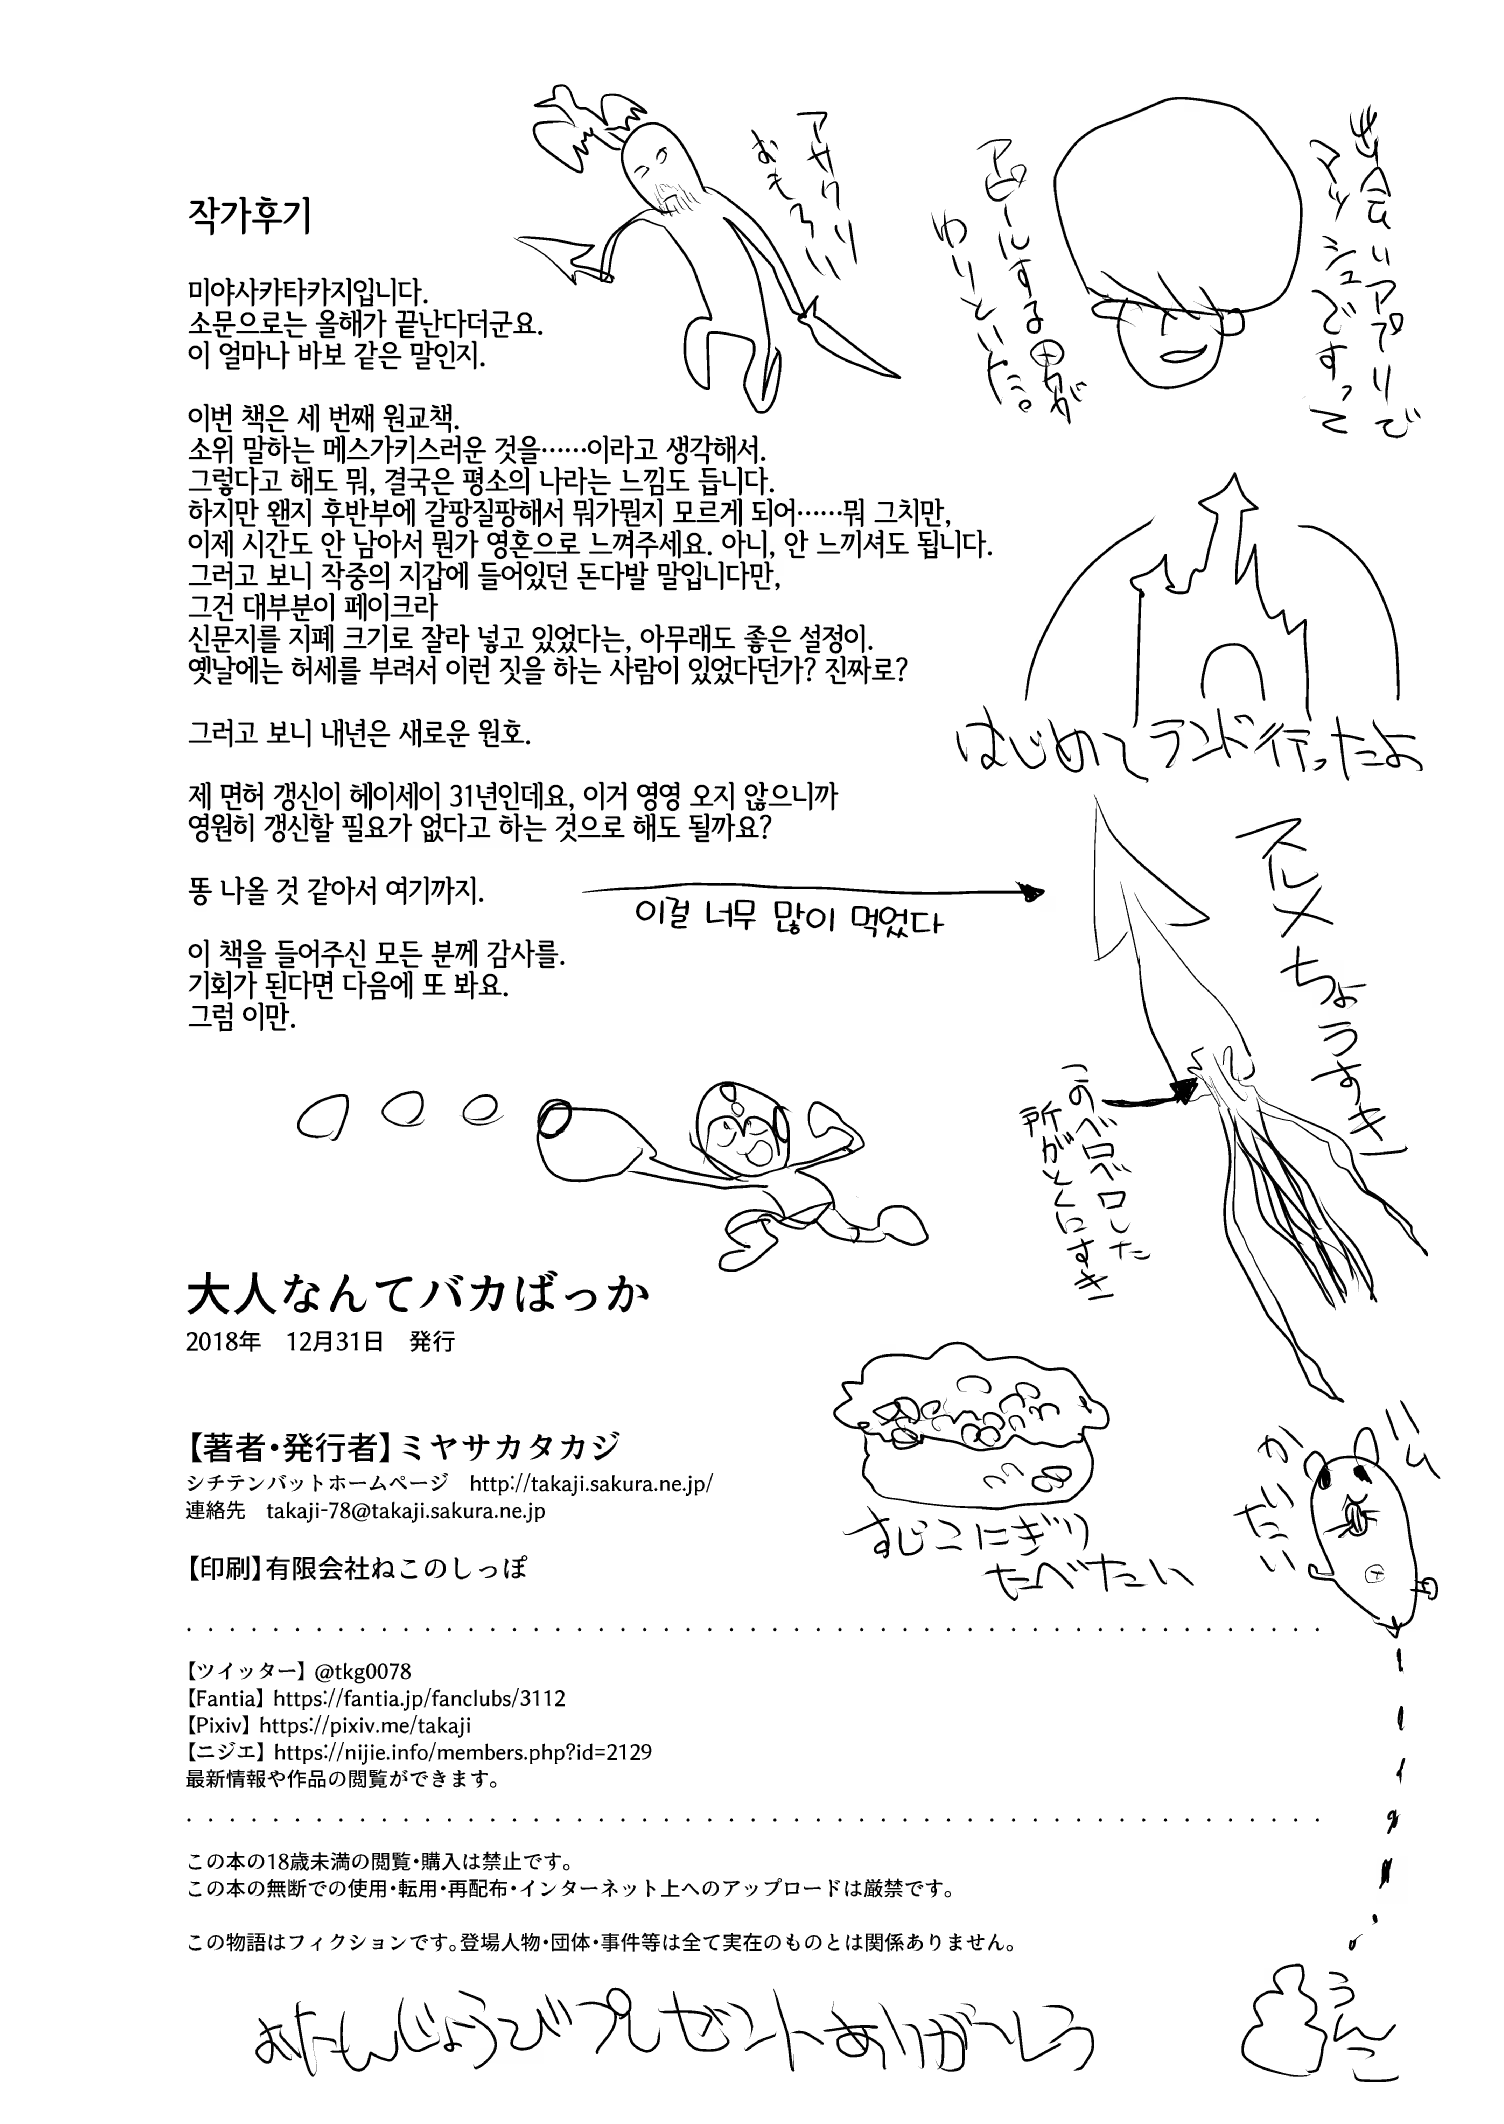 アサクリ
おもろい
出会いアプリで
マッシュですって
アピールする男が
わりといた。
작가후기
미야사카타카지입니다.
소문으로는 올해가 끝난다더군요.
이 얼마나 바보 같은 말인지.
이번 책은 세 번째 원교책.
소위 말하는 메스가키스러운 것을……이라고 생각해서.
그렇다고 해도 뭐, 결국은 평소의 나라는 느낌도 듭니다.
하지만 왠지 후반부에 갈팡질팡해서 뭐가뭔지 모르게 되어……뭐 그치만,
이제 시간도 안 남아서 뭔가 영혼으로 느껴주세요. 아니, 안 느끼셔도 됩니다.
그러고 보니 작중의 지갑에 들어있던 돈다발 말입니다만,
그건 대부분이 페이크라
신문지를 지폐 크기로 잘라 넣고 있었다는, 아무래도 좋은 설정이.
옛날에는 허세를 부려서 이런 짓을 하는 사람이 있었다던가? 진짜로?
그러고 보니 내년은 새로운 원호.
はじめてランド行ったよ
제 면허 갱신이 헤이세이 31년인데요, 이거 영영 오지 않으니까
영원히 갱신할 필요가 없다고 하는 것으로 해도 될까요?
똥 나올 것 같아서 여기까지.
이걸 너무 많이 먹었다
スルメちょうすき
이 책을 들어주신 모든 분께 감사를.
기회가 된다면 다음에 또 봐요.
그럼 이만.
このベロベロした
所がとくにすき
大人なんてバカばっか
2018年　12月31日　発行
【著者・発行者】ミヤサカタカジ
シチテンバットホームページ　http://takaji.sakura.ne.jp/
連絡先　takaji-78@takaji.sakura.ne.jp
【印刷】有限会社ねこのしっぽ
すじこにぎり
たべたい
ハム
かいたい
【ツイッター】@tkg0078
【Fantia】https://fantia.jp/fanclubs/3112
【Pixiv】https://pixiv.me/takaji
【ニジエ】https://nijie.info/members.php?id=2129
最新情報や作品の閲覧ができます。
この本の18歳未満の閲覧・購入は禁止です。
この本の無断での使用・転用・再配布・インターネット上へのアップロードは厳禁です。
この物語はフィクションです。登場人物・団体・事件等は全て実在のものとは関係ありません。
おたんじょうびプレゼントありがとう
うんこ